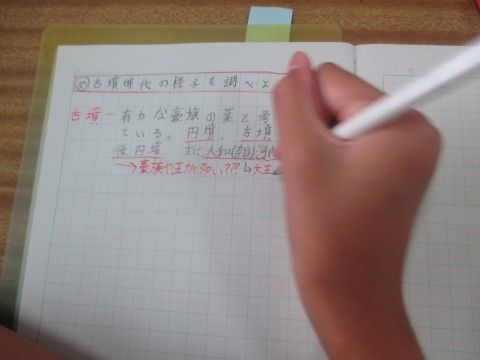 め 古墳時代の様子を調べよ
古墳…有力な豪族の墓と考
ている。円墳、方墳、
後円墳 主に大和(奈良)河内
→豪族や王が多い??? ↳大王